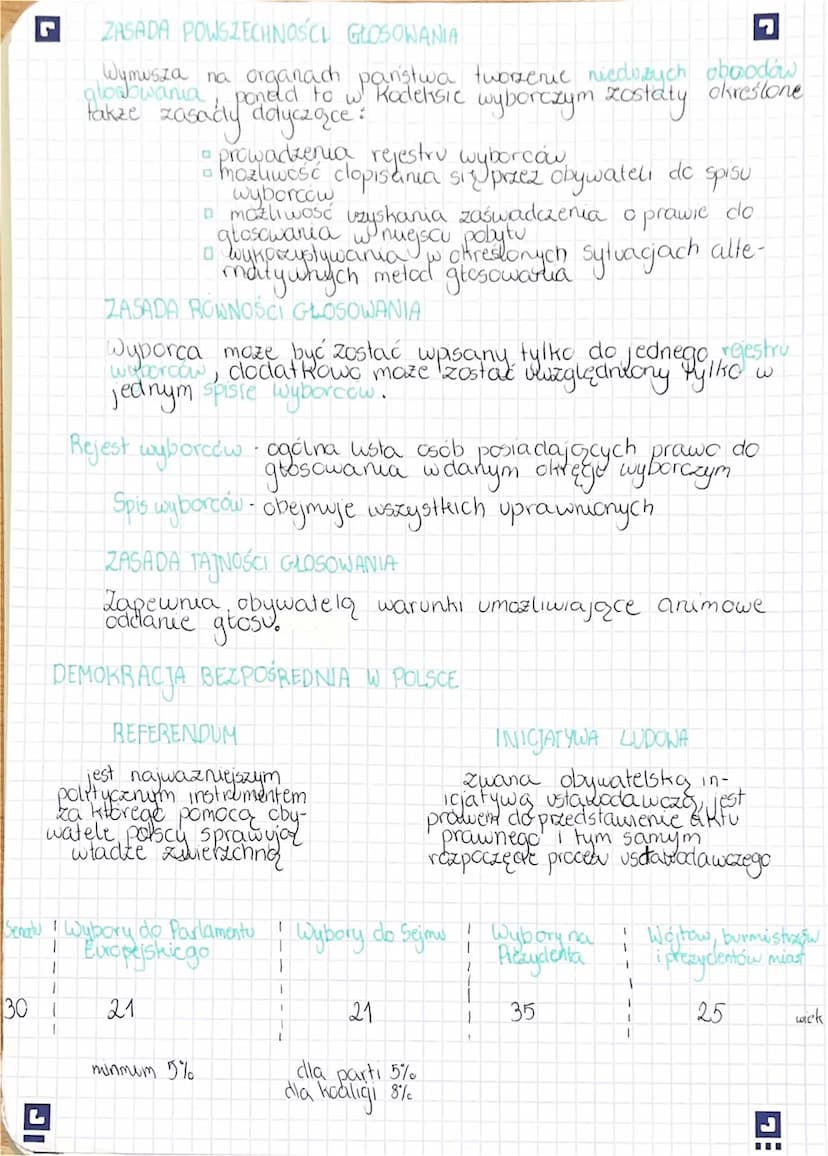 ZASADA POWSZECHNOŚCI GŁOSOWANIA
Wymusza na organach państwa tworzenie niedużych obwodów
głosowania, ponadto w Kodeksie wyborczym zostały określone
także zasady dotyczące:
▫ prowadzenia rejestru wyborców
▫ możliwość dopisania się przez obywateli do spisu
wyborców
▫ możliwość uzyskania zaświadczenia o prawie do
głosowania w miejscu pobytu
▫ wykorzystywania w określonych sytuacjach alte-
rnatywnych metod głosowania
ZASADA RÓWNOŚCI GŁOSOWANIA
Wyborca może być zostać wpisany tylko do jednego rejestru
wyborców, dodatkowo może zostać uwzględniony tylko w
jednym spisie wyborców.
Rejest wyborców - ogólna lista osób posiadających prawo do
głosowania w danym okręgu wyborczym
Spis wyborców - obejmuje wszystkich uprawnionych
ZASADA TAJNOŚCI GŁOSOWANIA
Zapewnia obywatelą warunki umożliwiające animowe
oddanie głosu.
DEMOKRACJA BEZPOŚREDNIA W POLSCE
REFERENDUM
jest najważniejszym
politycznym instrumentem
za którego pomocą oby-
watele polscy sprawują
władze zwierzchną
INICJATYWA LUDOWA
zwana obywatelską in-
icjatywą ustawodawczą, jest
prawem do przedstawienie aktu
prawnego i tym samym
rozpoczęcie procesu ustawodawczego
Senatu | Wybory do Parlamentu Europejskiego | Wybory do Sejmu | Wybory na Prezydenta | Wójtów, burmistrzów i prezydentów miast
30 | 21 | 21 | 35 | 25 wiek
minmum 5%
dla parti 5%
dla koaligi 8%